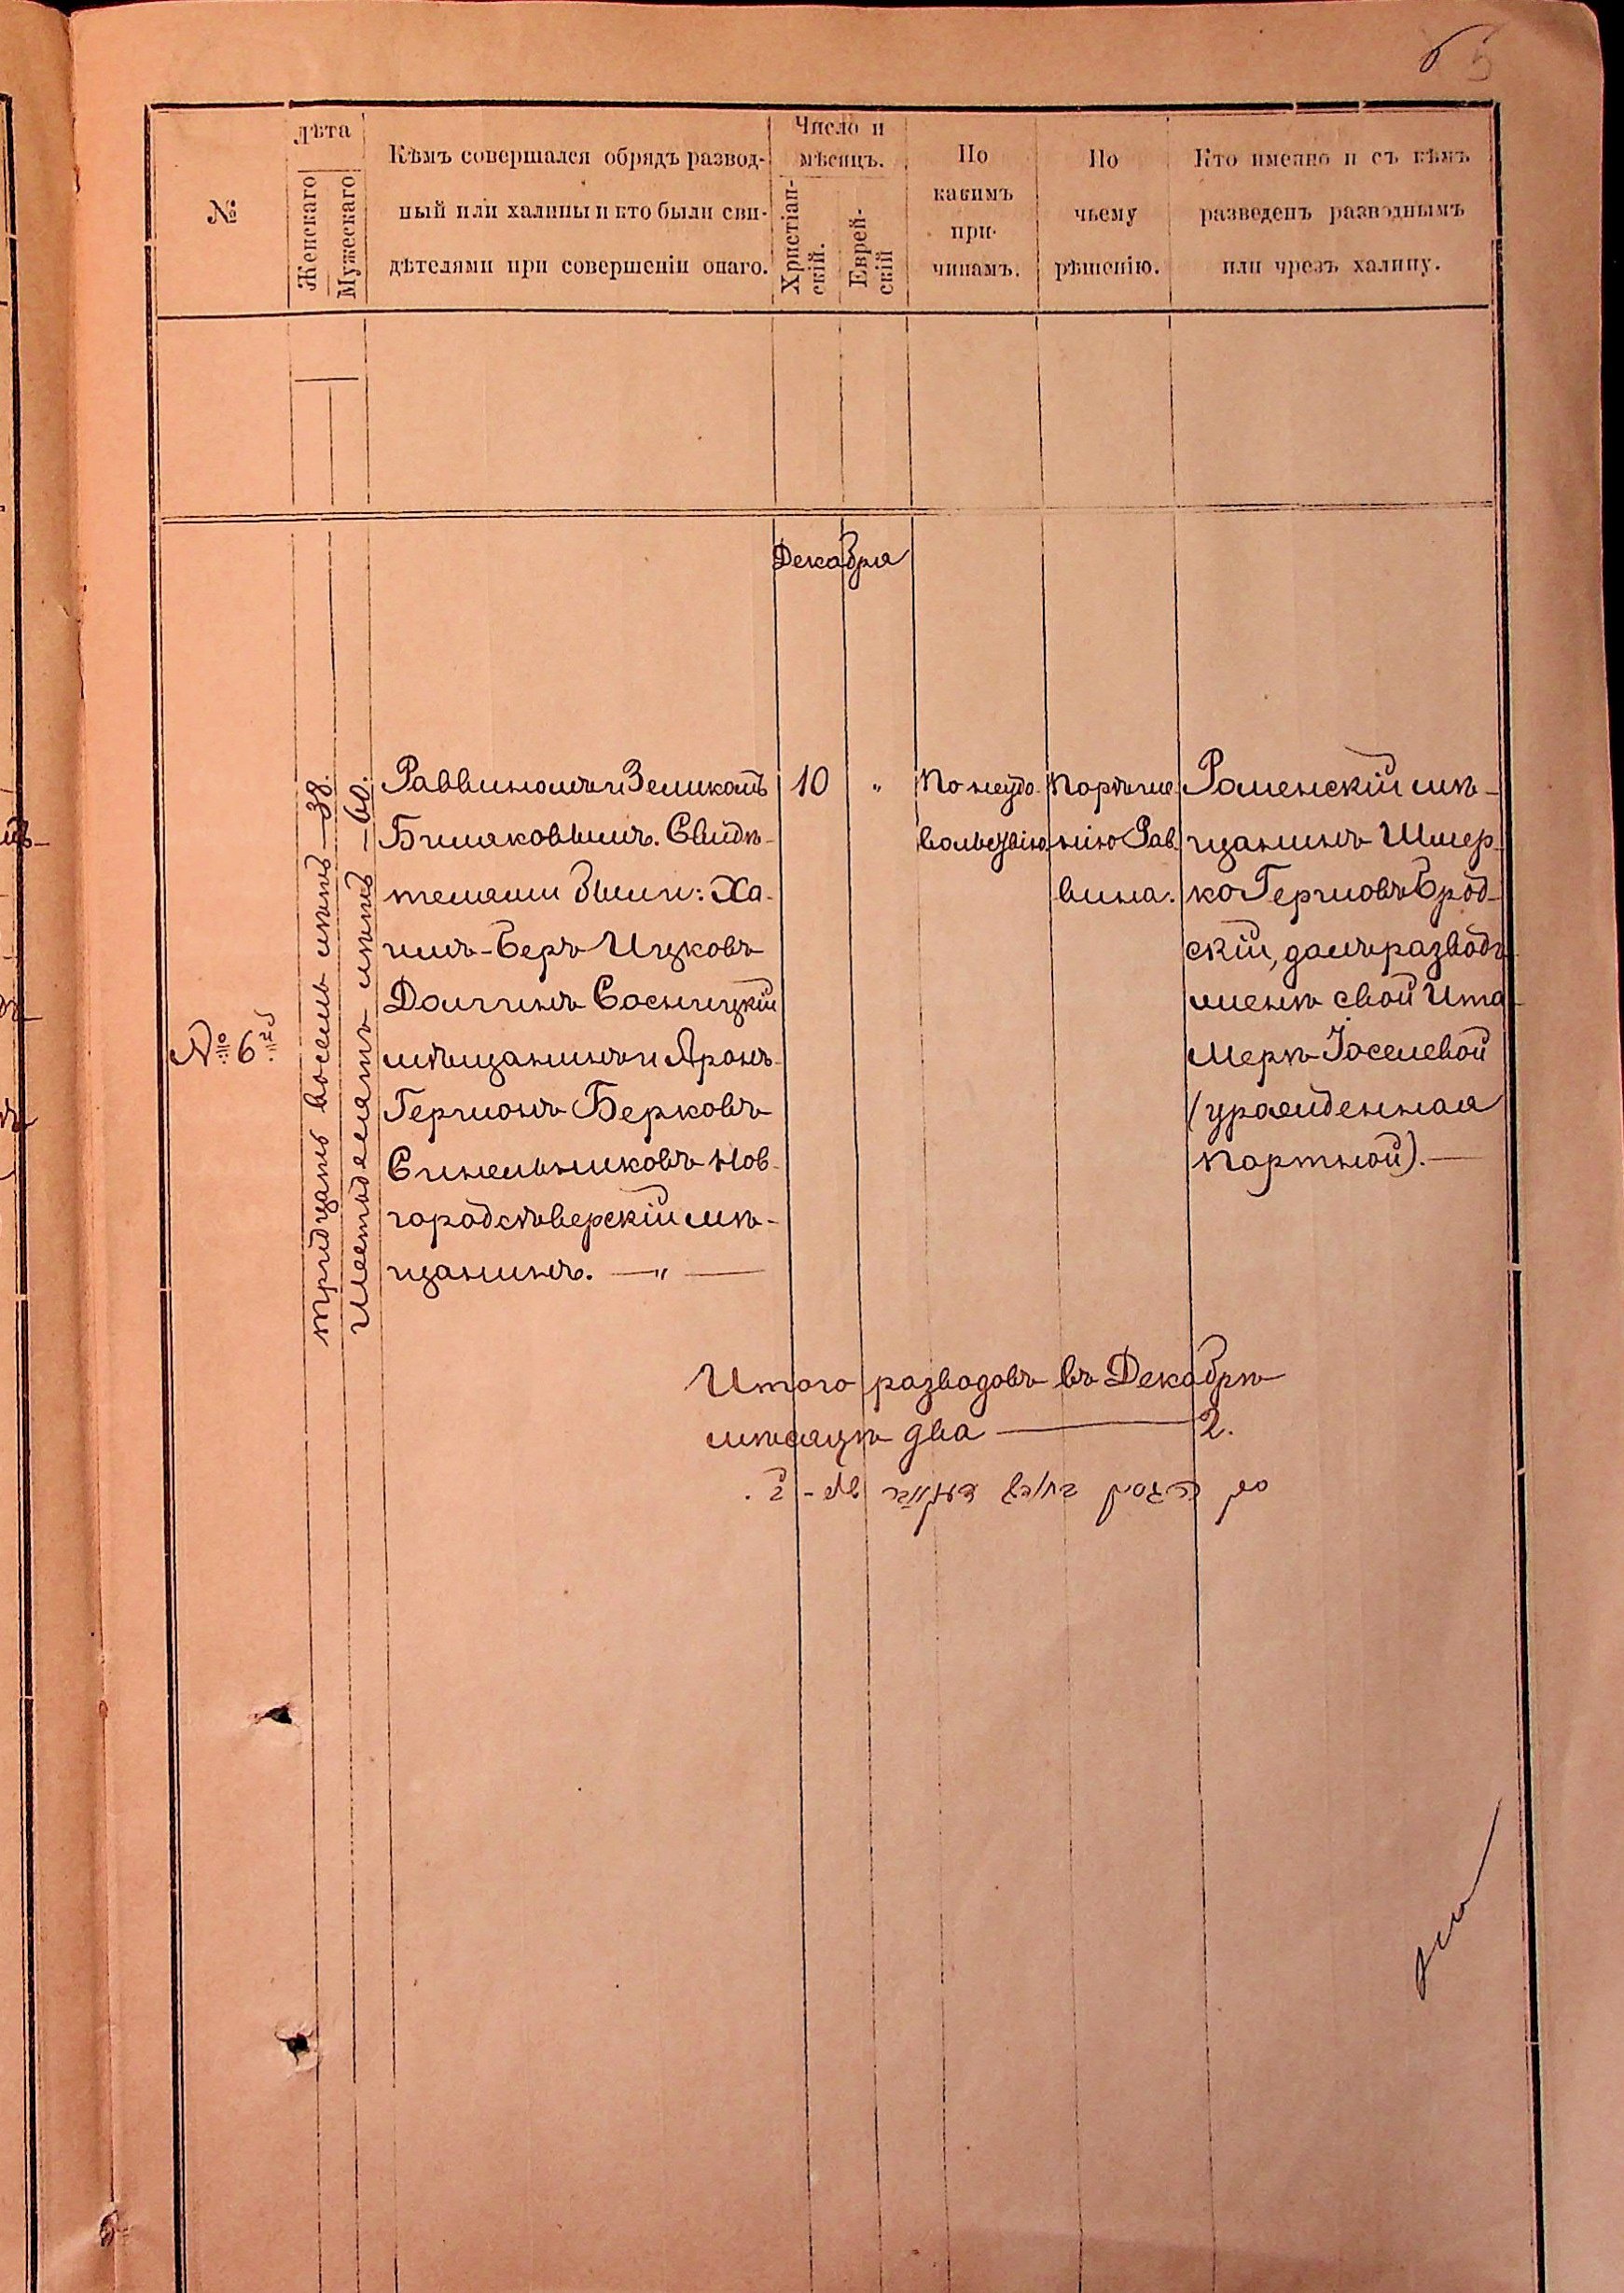 5
№
Лѣта
Женскаго
Мужескаго
Кѣмъ совершался обрядъ развод-
ный или халицы и кто были сви-
дѣтелями при совершеніи онаго.
Число и
мѣсяцъ.
Христіан-
скій.
Еврей-
скій
По
какимъ
при-
чинамъ.
По
чьему
рѣшенію.
Кто именно и съ кѣмъ
разведенъ разводнымъ
или чрезъ халицу.
Декабря
№ 6
тридцать восемь лѣтъ — 38.
Шестьдесятъ лѣтъ — 60.
Раввиномъ Зеликомъ
Свидѣ-
телями были: Ха-
имъ-Беръ Ицковъ
Долгинъ Сосницкій
мѣщанинъ и Аронъ-
Гершонъ Берковъ
Синельниковъ Нов-
городсѣверскій мѣ-
щанинъ. — " —
10
"
По неудо-
вольствію
По рѣше-
нію Рав-
вина.
Роменскій мѣ-
щанинъ Шмер-
ко Гершовъ Брод-
скій, далъ разводъ
женѣ свой Ита
Мерѣ Іоселевой
(урожденная
Портной). —
Итого разводовъ въ Декабрѣ
мѣсяцѣ два — 2.